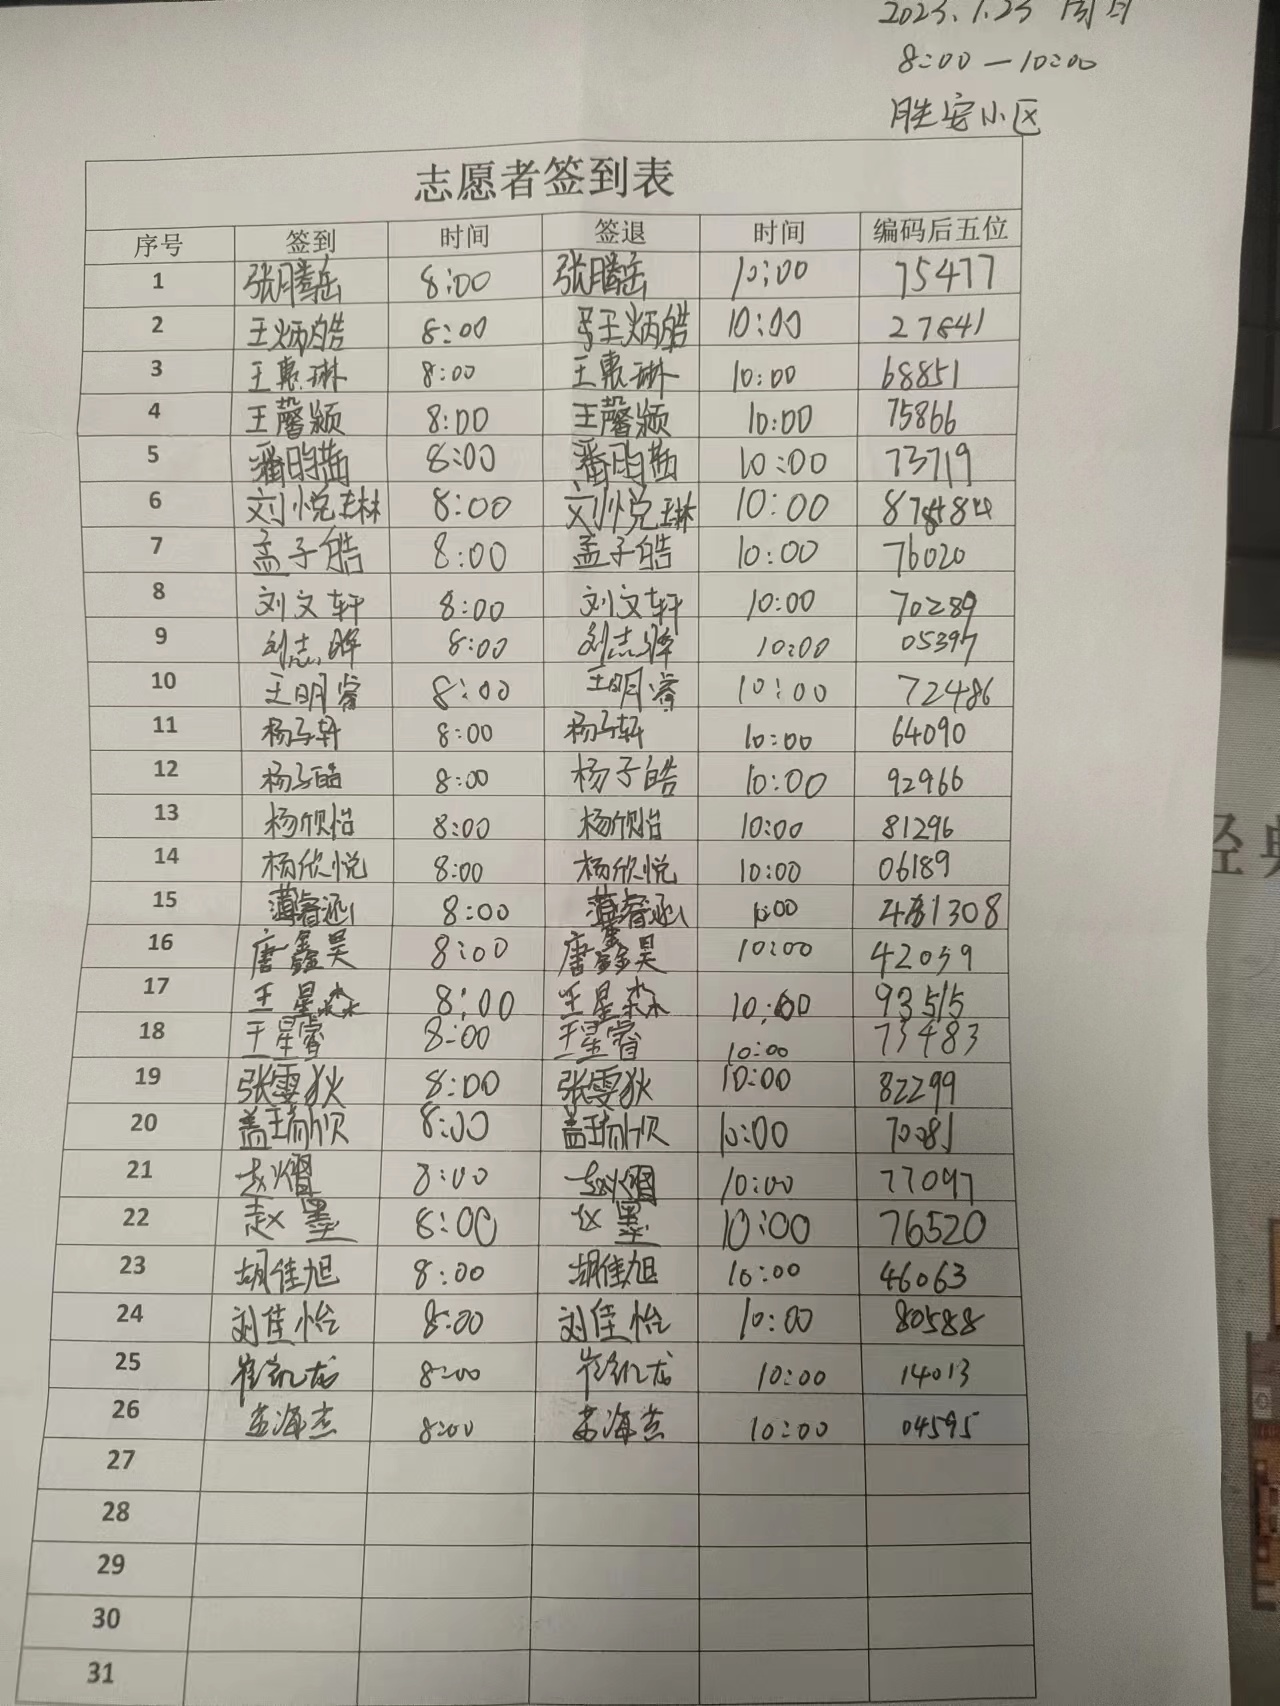 8:00—10:00
胜安小区
志愿者签到表
序号 签到 时间 签退 时间 编码后五位
1 张腾岳 8:00 张腾岳 10:00 75477
2 王炳皓 8:00 王炳皓 10:00 27841
3 王惠琳 8:00 王惠琳 10:00 68851
4 王馨颍 8:00 王馨颍 10:00 75866
5 潘昀喆 8:00 潘昀喆 10:00 73719
6 刘悦琳 8:00 刘悦琳 10:00
7 孟子皓 8:00 孟子皓 10:00 76020
8 刘文轩 8:00 刘文轩 10:00 70289
9 刘志 8:00 刘志 10:00 05397
10 王明睿 8:00 王明睿 10:00 72486
11 杨子轩 8:00 杨子轩 10:00 64090
12 杨子皓 8:00 杨子皓 10:00 92966
13 杨欣怡 8:00 杨欣怡 10:00 81296
14 杨欣悦 8:00 杨欣悦 10:00 06189
15 8:00 10:00
16 唐鑫昊 8:00 唐鑫昊 10:00 42059
17 王星森 8:00 王星森 10:00 93515
18 王星睿 8:00 王星睿 10:00 73483
19 张雯狄 8:00 张雯狄 10:00 82299
20 盖瑞欣 8:00 盖瑞欣 10:00 70081
21 赵熠 8:00 赵熠 10:00 77097
22 赵墨 8:00 赵墨 10:00 76520
23 胡佳旭 8:00 胡佳旭 10:00 46063
24 刘佳怡 8:00 刘佳怡 10:00 80588
25 崔凯龙 8:00 崔凯龙 10:00 14013
26 孟海杰 8:00 孟海杰 10:00 04595
27
28
29
30
31